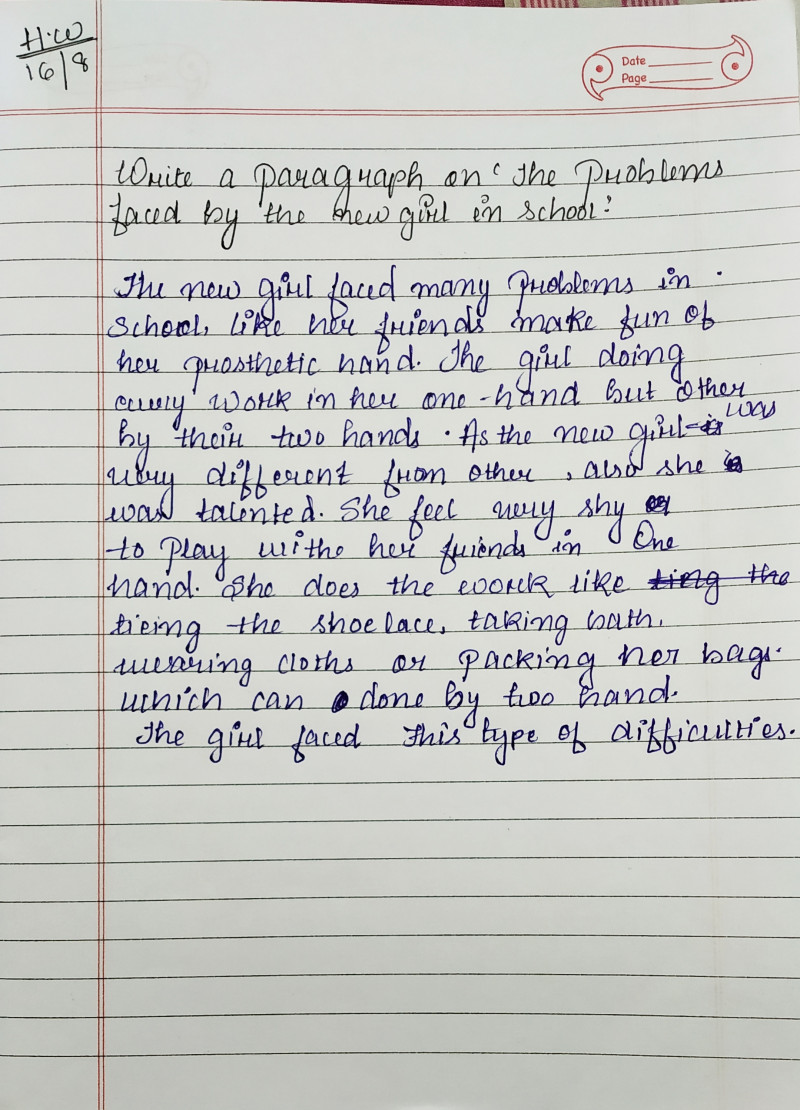 H.W
16/8
Date
Page
Write a paragraph on 'The Problems
faced by the new girl in school.'
The new girl faced many Problems in .
School, like her friends make fun of
her prosthetic hand. The girl doing
every work in her one-hand but other
by their two hands. As the new girl is was
very different from other, also she is
was talented. She feel very shy
to play withe her friends in One
hand. She does the work like ting the
tieing the shoe lace, taking bath,
wearing cloths or packing her bags.
which can done by two hand.
The girl faced This type of difficulties.